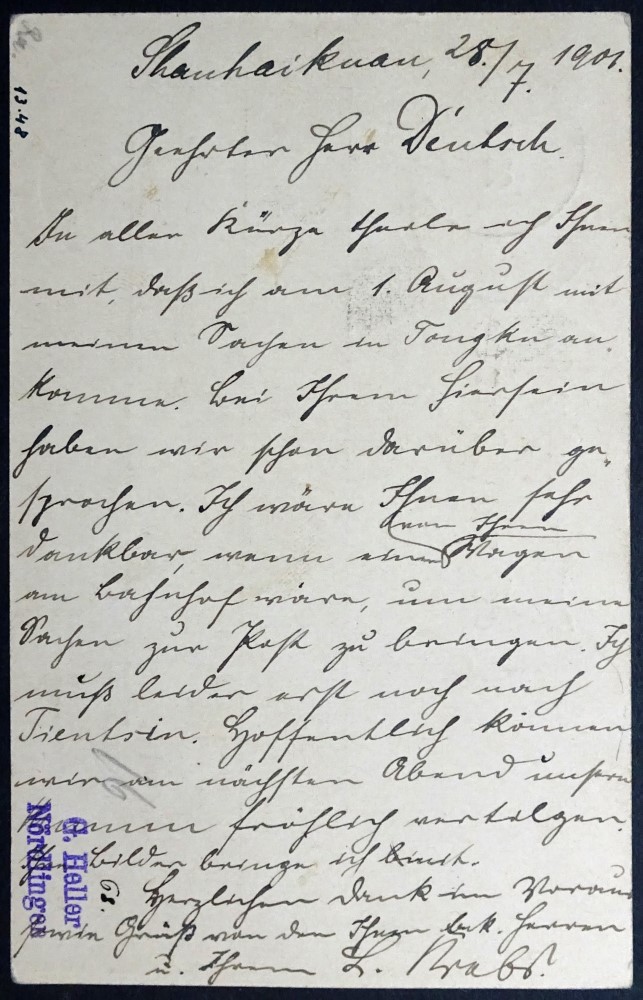 Shanhaikuan, 28./7. 1901.
Geehrter Herr Deutsch.
In aller Kürze theile ich Ihnen
mit, daß ich am 1. August mit
meinen Sachen in Tongku an
komme. Bei Ihrem Hiersein
haben wir schon darüber ge-
sprochen. Ich wäre Ihnen sehr
von Ihren
dankbar, wenn einer Wagen
am Bahnhof wäre, um meine
Sachen zur Post zu bringen. Ich
muß leider erst noch nach
Tientsin. Hoffentlich können
wir am nächsten Abend unsern
fröhlich vertilgen.
Bilder bringe ich mit.
Herzlichen Dank im Voraus
sowie Gruß von den Ihnen bek. Herren
u. Ihrem L. Krebs.
G. Heller
Nördlingen
68.
13.48